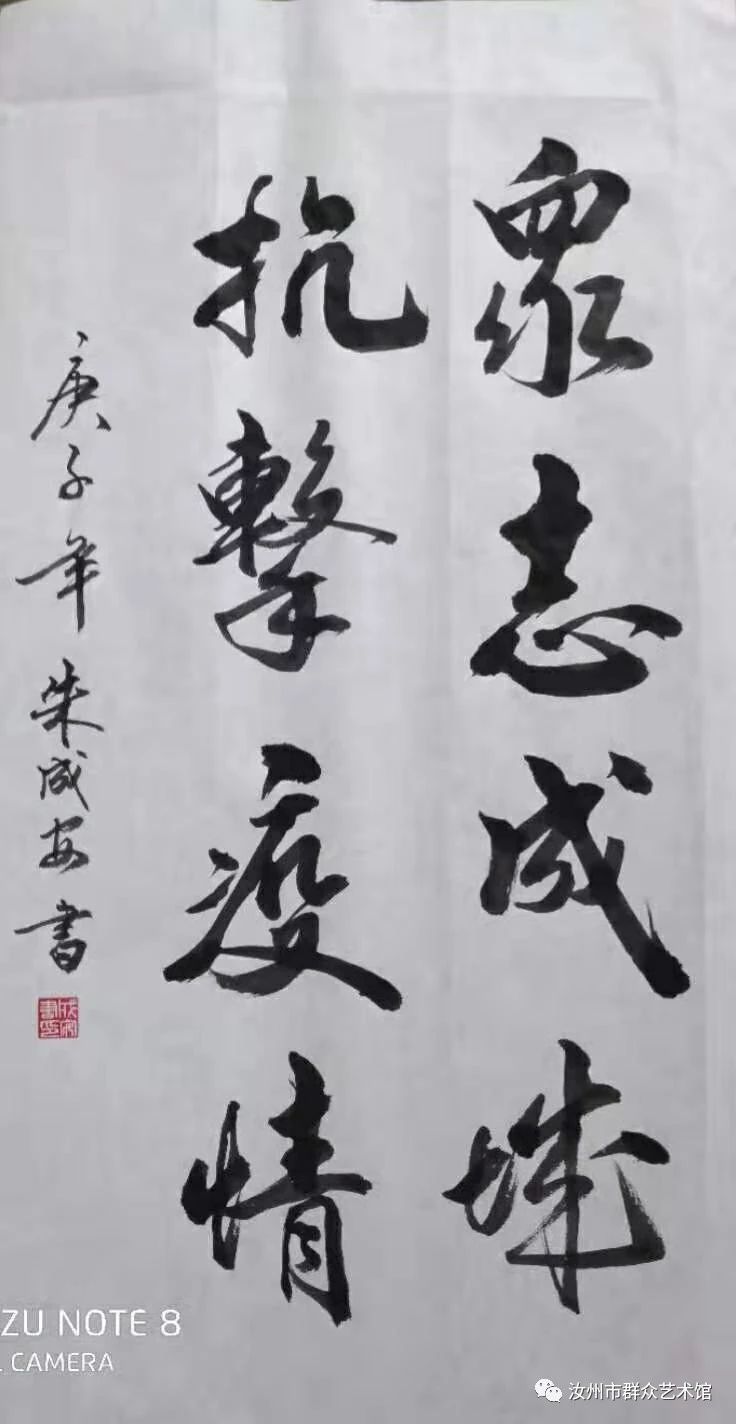 眾志成城
抗擊疫情
庚子年 朱成安書
成安書印
ZU NOTE 8
CAMERA
汝州市群众艺术馆